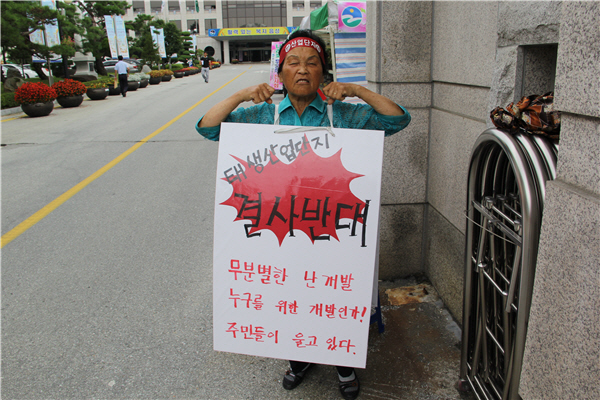 산업단지
태생산업단지
결사반대
무분별한 난개발
누구를 위한 개발인가!
주민들이 울고 있다.